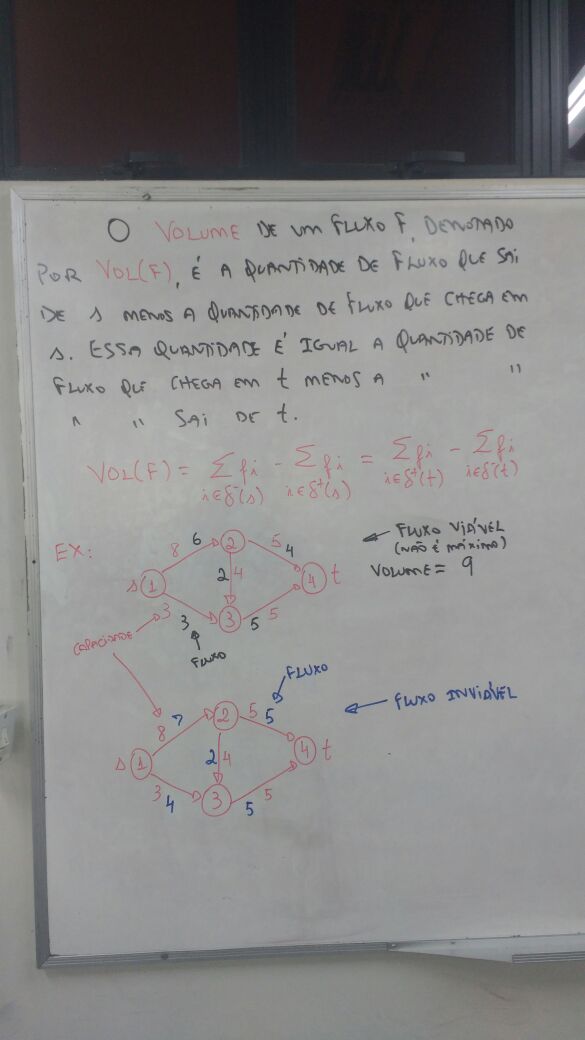 O VOLUME DE UM FLUXO F, DENOTADO
POR VOL(F), É A QUANTIDADE DE FLUXO QUE SAI
DE s MENOS A QUANTIDADE DE FLUXO QUE CHEGA EM
s. ESSA QUANTIDADE É IGUAL A QUANTIDADE DE
FLUXO QUE CHEGA EM t MENOS A " "
" " SAI DE t.
VOL(F) = Σ fi - Σ fi = Σ fi - Σ fi
i∈δ⁻(s) i∈δ⁺(s) i∈δ⁺(t) i∈δ⁻(t)
EX:
8 6 2 5 4
s 1 2 4 4 t
3 3 3 5 5
CAPACIDADE
FLUXO
FLUXO VIÁVEL
(NÃO É MÁXIMO)
VOLUME = 9
FLUXO
8 7 2 5 5
s 1 2 4 4 t
3 4 3 5 5
FLUXO INVIÁVEL